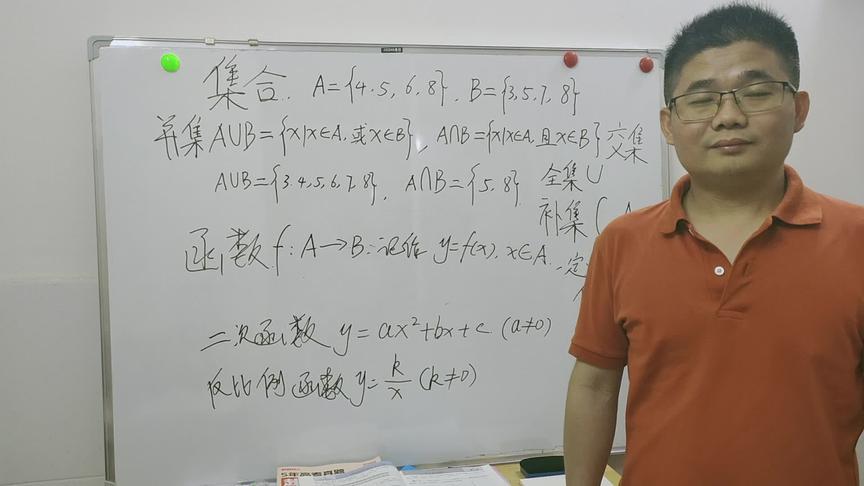 集合. A={4.5,6,8}. B={3,5,7,8}
并集 A∪B={x|x∈A,或x∈B}、A∩B={x|x∈A,且x∈B} 交集
A∪B={3.4,5,6,7,8}, A∩B={5,8}. 全集U
补集
函数 f:A→B:记作 y=f(x), x∈A. 一定
二次函数 y=ax²+bx+c (a≠0)
反比例函数 y=k/x (k≠0)
5年高考真题